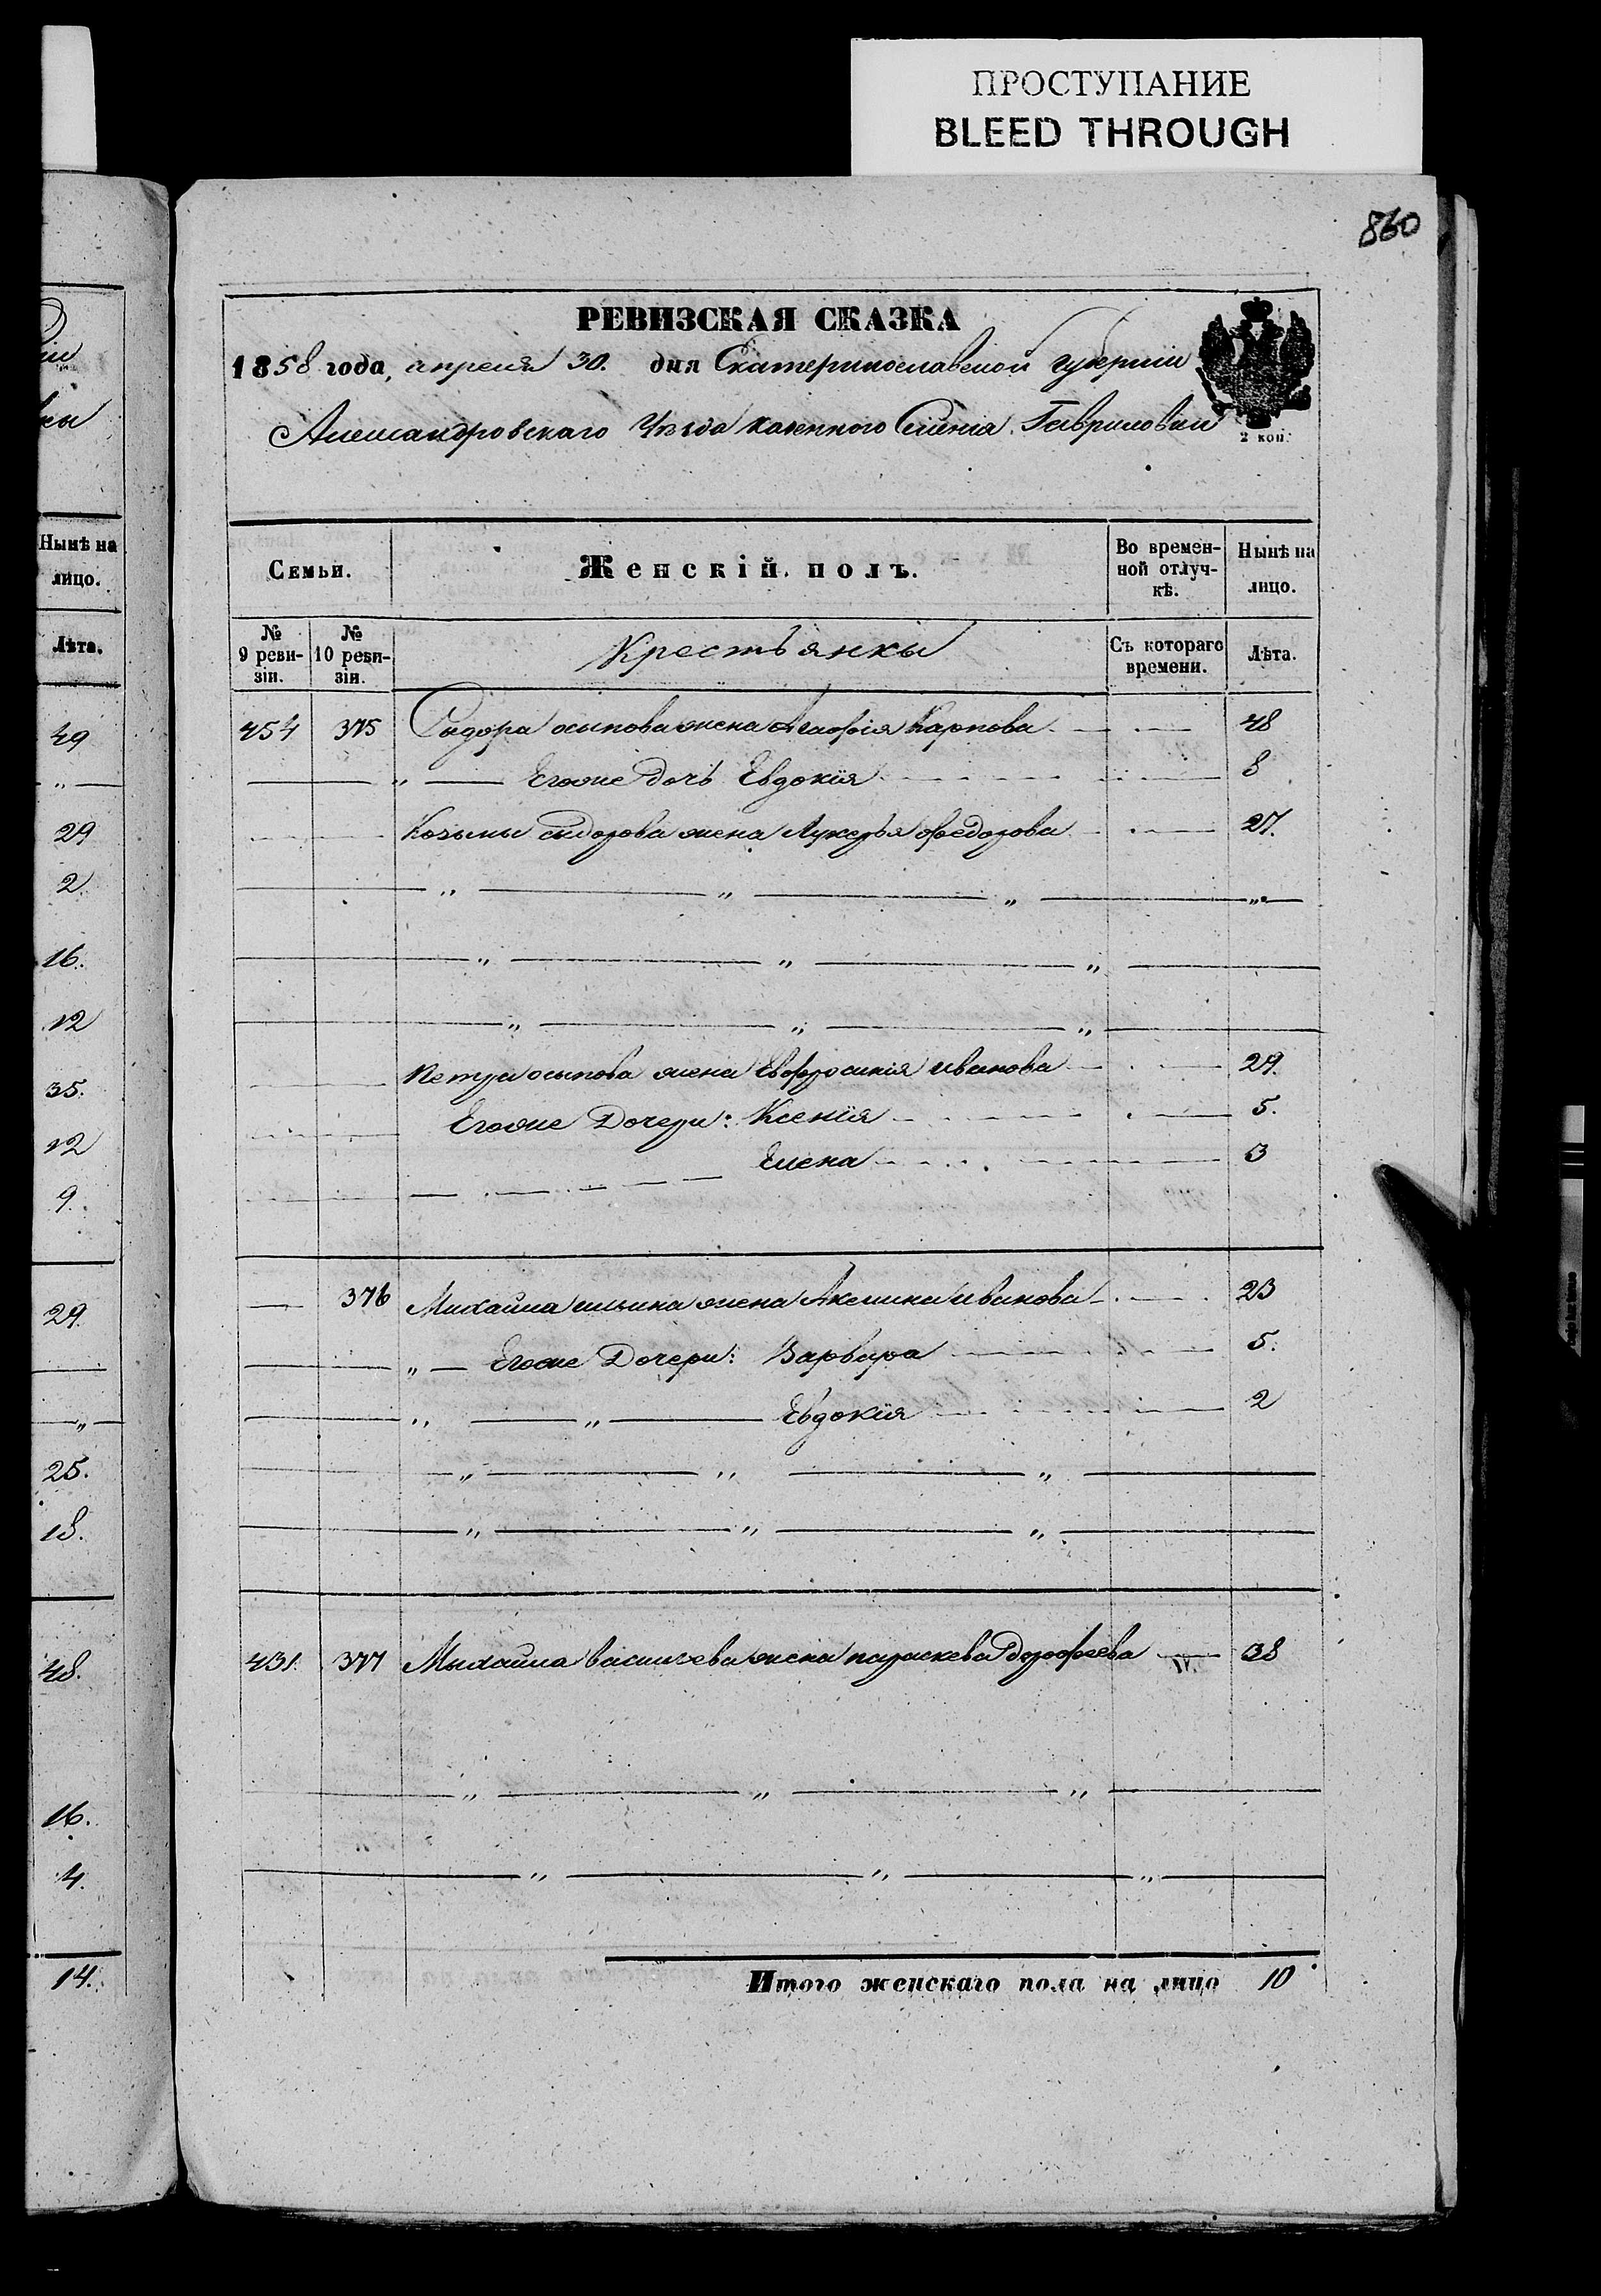 ПРОСТУПАНИЕ
BLEED THROUGH
860
РЕВИЗСКАЯ СКАЗКА
1858 года, апреля 30. дня Екатеринославской губернии
Александровскаго Уѣзда казенного Селенія Гавриловки
2 коп.
Семьи. Женскій полъ. Во времен-ной отлуч-кѣ. Нынѣ на лицо.
№ 9 реви-зіи. № 10 реви-зіи. Крестьянки Съ котораго времени. Лѣта.
454 375 Сидора осипова жена Агафія Карпова 48
" Егоже дочь Евдокія 8
Козьмы сидорова жена Лукерья федорова 27.
" " " "
" " "
" " "
Петра осипова жена Евфросинія иванова 29.
Егоже Дочери: Ксенія 5.
Елена 3
376 Михайла ильина жена Акелина иванова 23
" Егоже Дочери: Варвара 5.
" " Евдокія 2
" " "
" " "
431. 377 Михайла васильева жена параскева дорофеева 38
" " "
" " "
Итого женскаго пола на лицо 10
Нынѣ на
лицо.
Лѣта.
49
"
29
2
16.
12
35.
12
9.
29
"
25.
18.
48.
16.
4.
14.